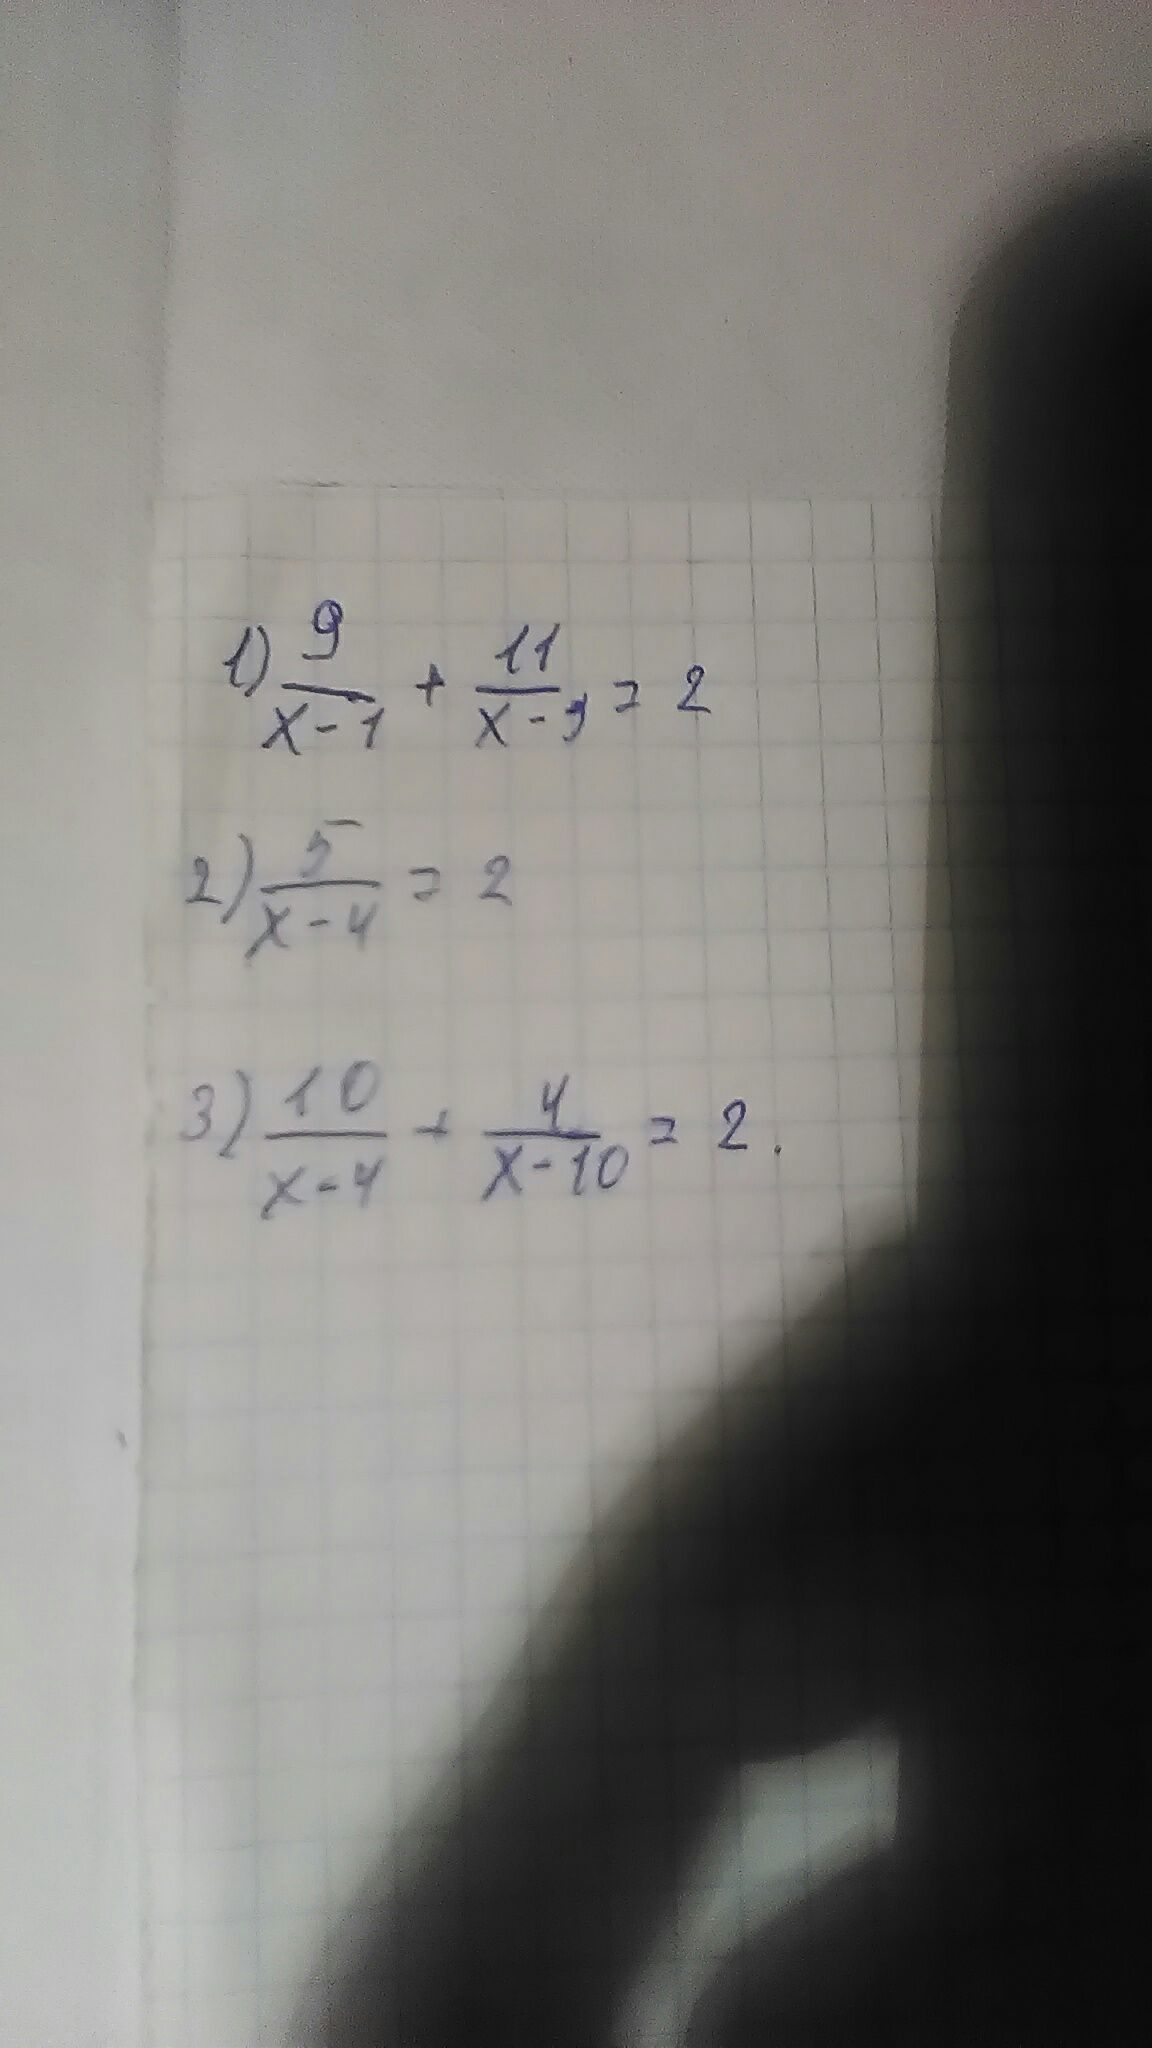 1) 9/(x-1) + 11/(x-9) = 2
2) 5/(x-4) = 2
3) 10/(x-4) + 4/(x-10) = 2.